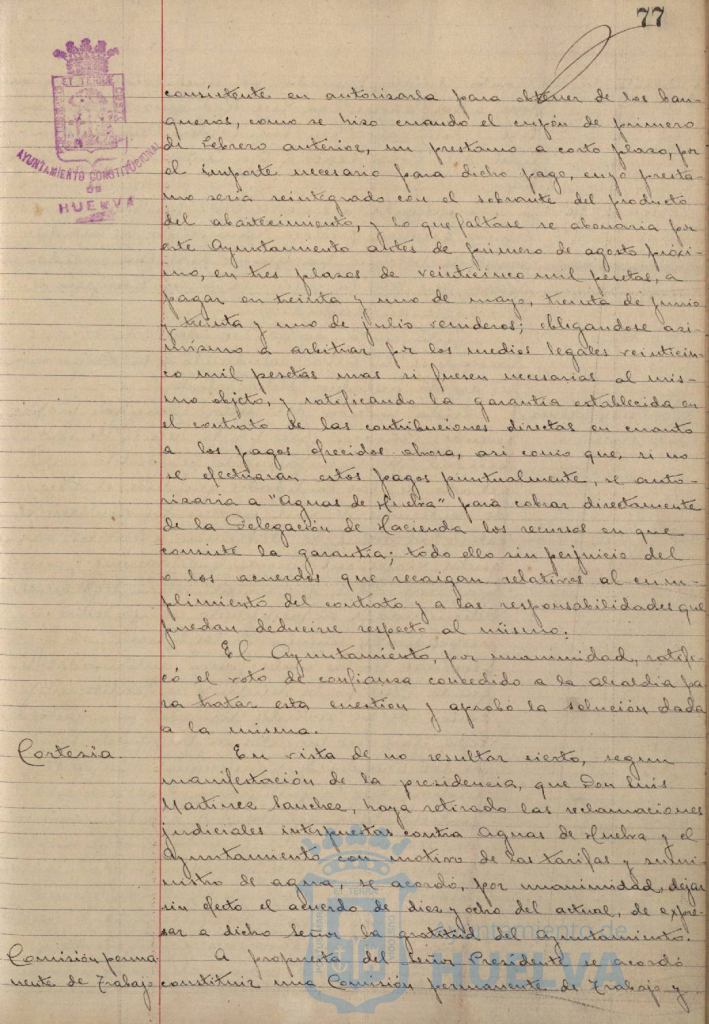 77
ET TERRÆ
AYUNTAMIENTO CONSTITUCIONAL
DE
HUELVA
consistente en autorizarla para obtener de los ban-
queros, como se hizo cuando el cupón de primero
de Febrero anterior, un prestamo a corto plazo, por
el importe necesario para dicho pago, cuyo presta-
mo seria reintegrado con el sobrante del producto
del abastecimiento, y lo que faltase se abonaria por
este Ayuntamiento antes de primero de agosto próxi-
mo, en tres plazos de veinticinco mil pesetas, a
pagar en treinta y uno de mayo, treinta de junio
y treinta y uno de julio venideros; obligandose asi-
mismo a arbitrar por los medios legales veinticin-
co mil pesetas mas si fuesen necesarias al mis-
mo objeto, y ratificando la garantia establecida en
el contrato de las contribuciones directas en cuanto
a los pagos ofrecidos ahora, asi como que, si no
se efectuaran estos pagos puntualmente, se auto-
rizaria a "Aguas de Huelva" para cobrar directamente
de la Delegación de Hacienda los recursos en que
consiste la garantia; todo ello sin perjuicio del
o los acuerdos que recaigan relativos al cum-
plimiento del contrato y a las responsabilidades que
puedan deducirse respecto al mismo.
El Ayuntamiento, por unanimidad, ratifi-
có el voto de confianza concedido a la alcaldia pa
ra tratar esta cuestion y aprobó la solución dada
a la misma.
Cortesia.
En vista de no resultar cierto, segun
manifestación de la presidencia, que Don Luis
Martinez Sanchez, haya retirado las reclamaciones
judiciales interpuestas contra Aguas de Huelva y el
Ayuntamiento con motivo de las tarifas y sumi-
nistro de agua, se acordó, por unanimidad, dejar
sin efecto el acuerdo de diez y ocho del actual, de expre-
sar a dicho Señor la gratitud del Ayuntamiento.
Comisión perma-
nente de Trabajo
A propuesta del Señor Presidente se acordó
constituir una Comisión permanente de Trabajo y
Ayuntamiento de
HUELVA